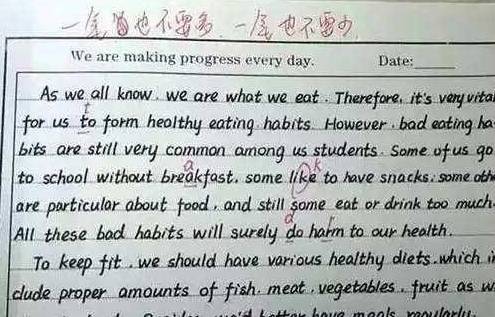 一笔也不要多 一笔也不要少
We are making progress every day. Date:
As we all know, we are what we eat. Therefore, it's very vital
for us to form healthy eating habits. However, bad eating ha-
bits are still very common among us students. Some of us go
to school without breakfast, some like to have snacks, some oth
are particular about food, and still some eat or drink too much.
All these bad habits will surely do harm to our health.
To keep fit, we should have various healthy diets, which in
clude proper amounts of fish, meat, vegetables, fruit as w
better have meals regularly.